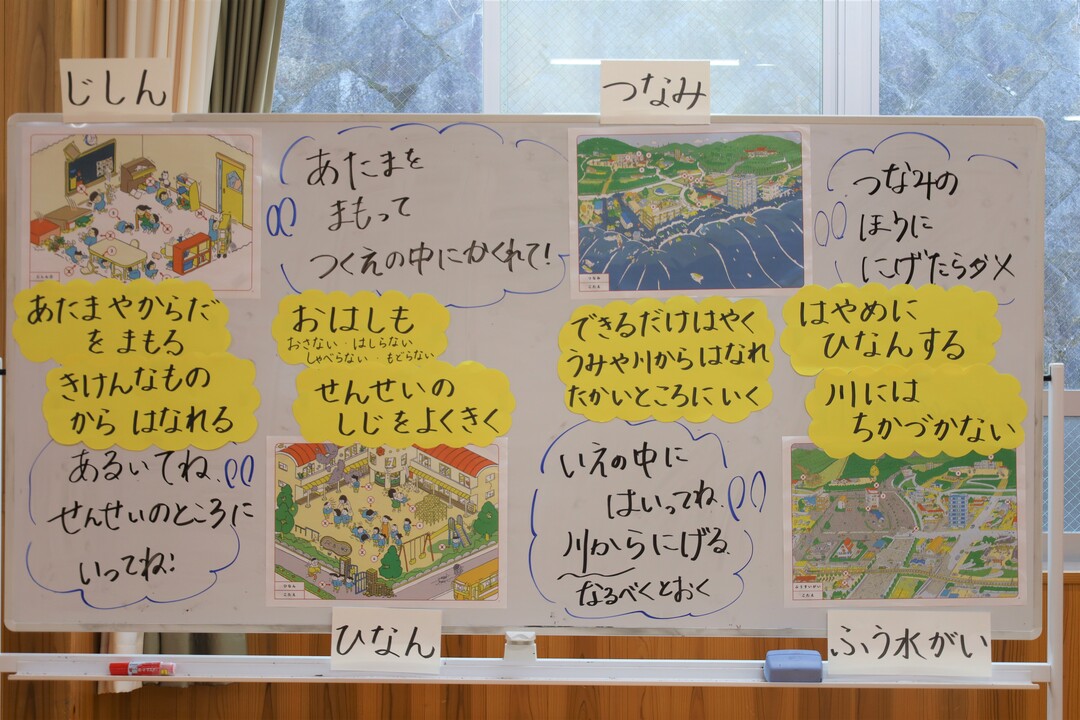 じしん
あたまを
まもって
つくえの中にかくれて!
あたまやからだ
をまもる
きけんなもの
から はなれる
おはしも
おさない・はしらない
しゃべらない・もどらない
せんせいの
しじをよくきく
あるいてね
せんせいのところに
いってね!
ひなん
つなみ
つなみの
ほうに
にげたらダメ
できるだけはやく
うみや川からはなれ
たかいところにいく
はやめに
ひなんする
川には
ちかづかない
いえの中に
はいってね
川からにげる
なるべくとおく
ふう水がい